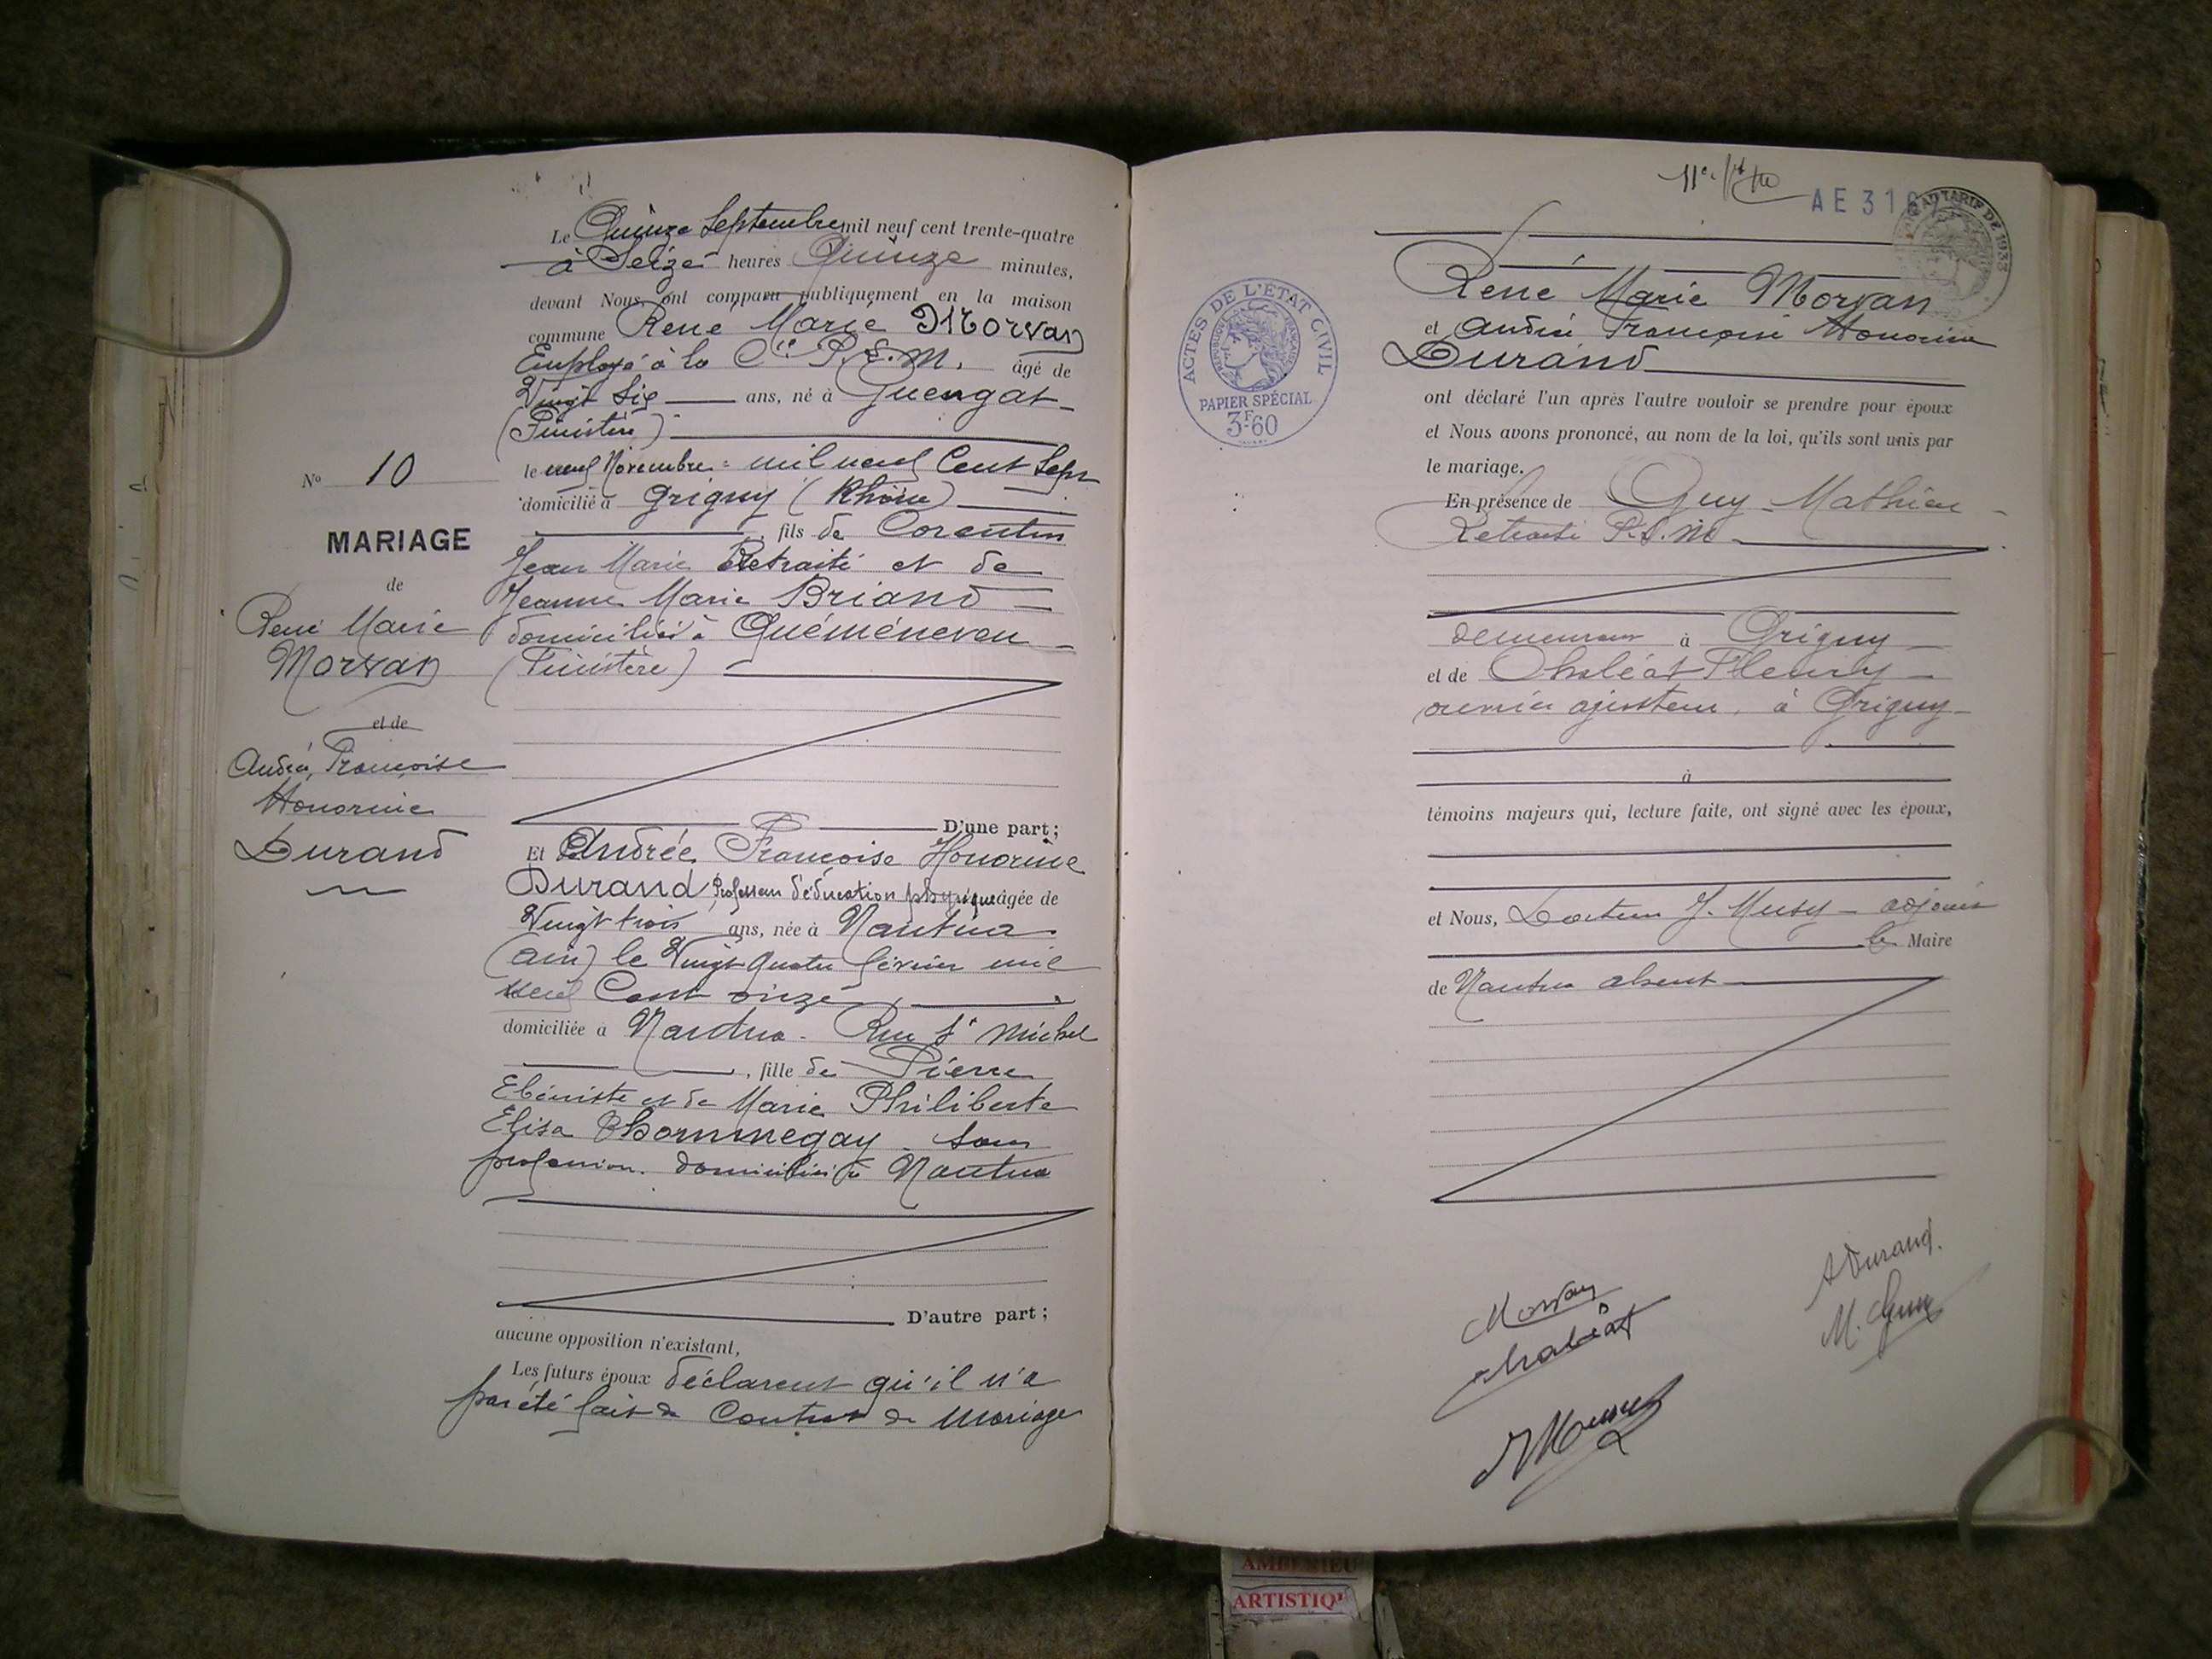 Le Quinze Septembre mil neuf cent trente-quatre
à Seize heures Quinze minutes,
devant Nous, ont comparu publiquement en la maison
commune René Marie Morvan
Employé à la Cie P.L.M. âgé de
Vingt Six ans, né à Guengat
(Finistère)
le neuf Novembre mil neuf Cent Sept
domicilié à Grigny (Rhône)
, fils de Corentin
Jean Marie Retraité et de
Jeanne Marie Briand
domiciliés à Quéménéven
(Finistère)
D'une part;
Et Andrée Françoise Honorine
Durand Professeur d'éducation physique âgée de
Vingt trois ans, née à Nantua
(Ain) le Vingt Quatre février mil
neuf Cent onze
domiciliée à Nantua - Rue St Michel
, fille de Pierre
Ebéniste et de Marie Philiberte
Elisa Thommegay sans
profession. domiciliés à Nantua
D'autre part;
aucune opposition n'existant,
Les futurs époux déclarent qu'il n'a
pas été fait de Contrat de Mariage
No 10
MARIAGE
de
René Marie
Morvan
et de
Andrée Françoise
Honorine
Durand
AE 31
TARIF DE 1933
ACTES DE L'ETAT CIVIL
PAPIER SPÉCIAL
3F60
René Marie Morvan
et Andrée Françoise Honorine
Durand
ont déclaré l'un après l'autre vouloir se prendre pour époux
et Nous avons prononcé, au nom de la loi, qu'ils sont unis par
le mariage.
En présence de Guy Mathieu
Retraité P.L.M.
demeurant à Grigny
et de Chaléat Fleury
ouvrier ajusteur, à Grigny
à
témoins majeurs qui, lecture faite, ont signé avec les époux,
et Nous, Docteur J. Musy - adjoint
le Maire
de Nantua absent
Morvan
ADurand.
Chaléat
M. Guy
AMBERIEU
ARTISTIQU